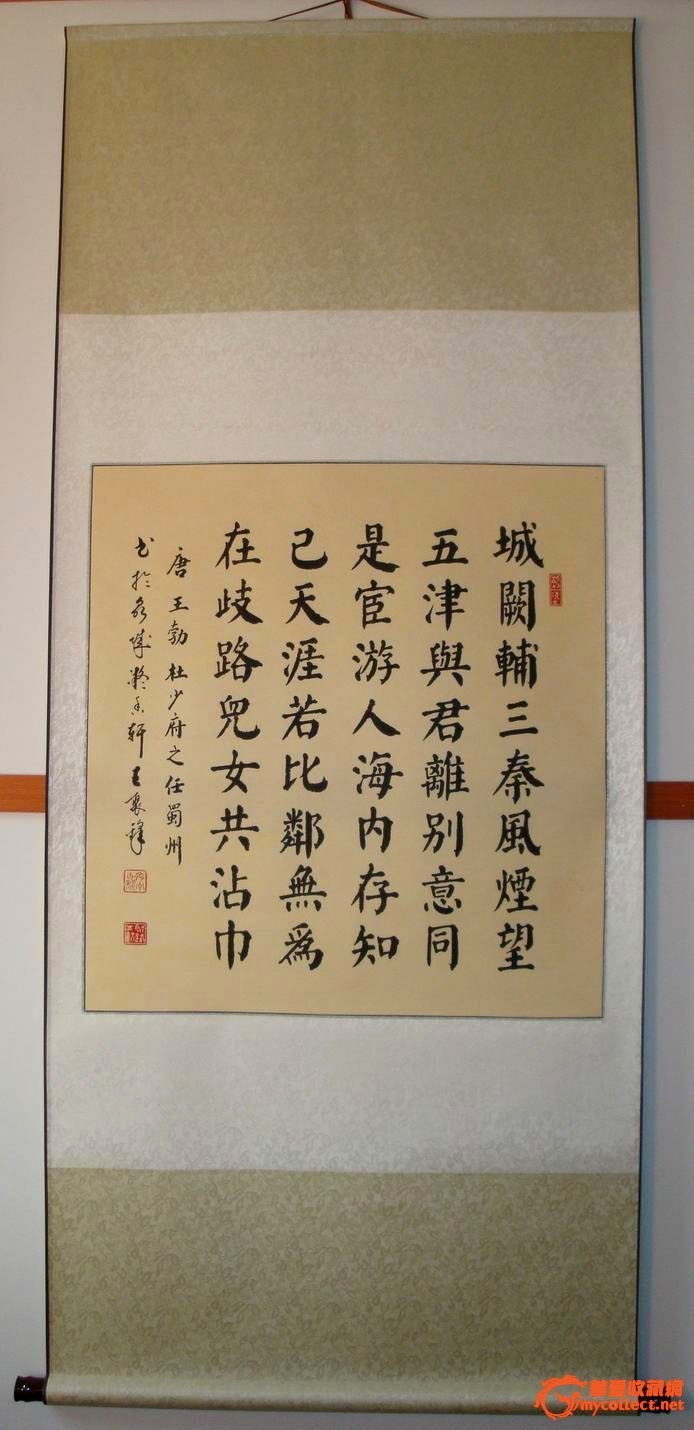 城闕輔三秦風煙望
五津與君離别意同
是宦游人海内存知
己天涯若比鄰無為
在歧路兒女共沾巾
唐王勃杜少府之任蜀州
書於泉城凝香軒王
收藏網
mycollect.net